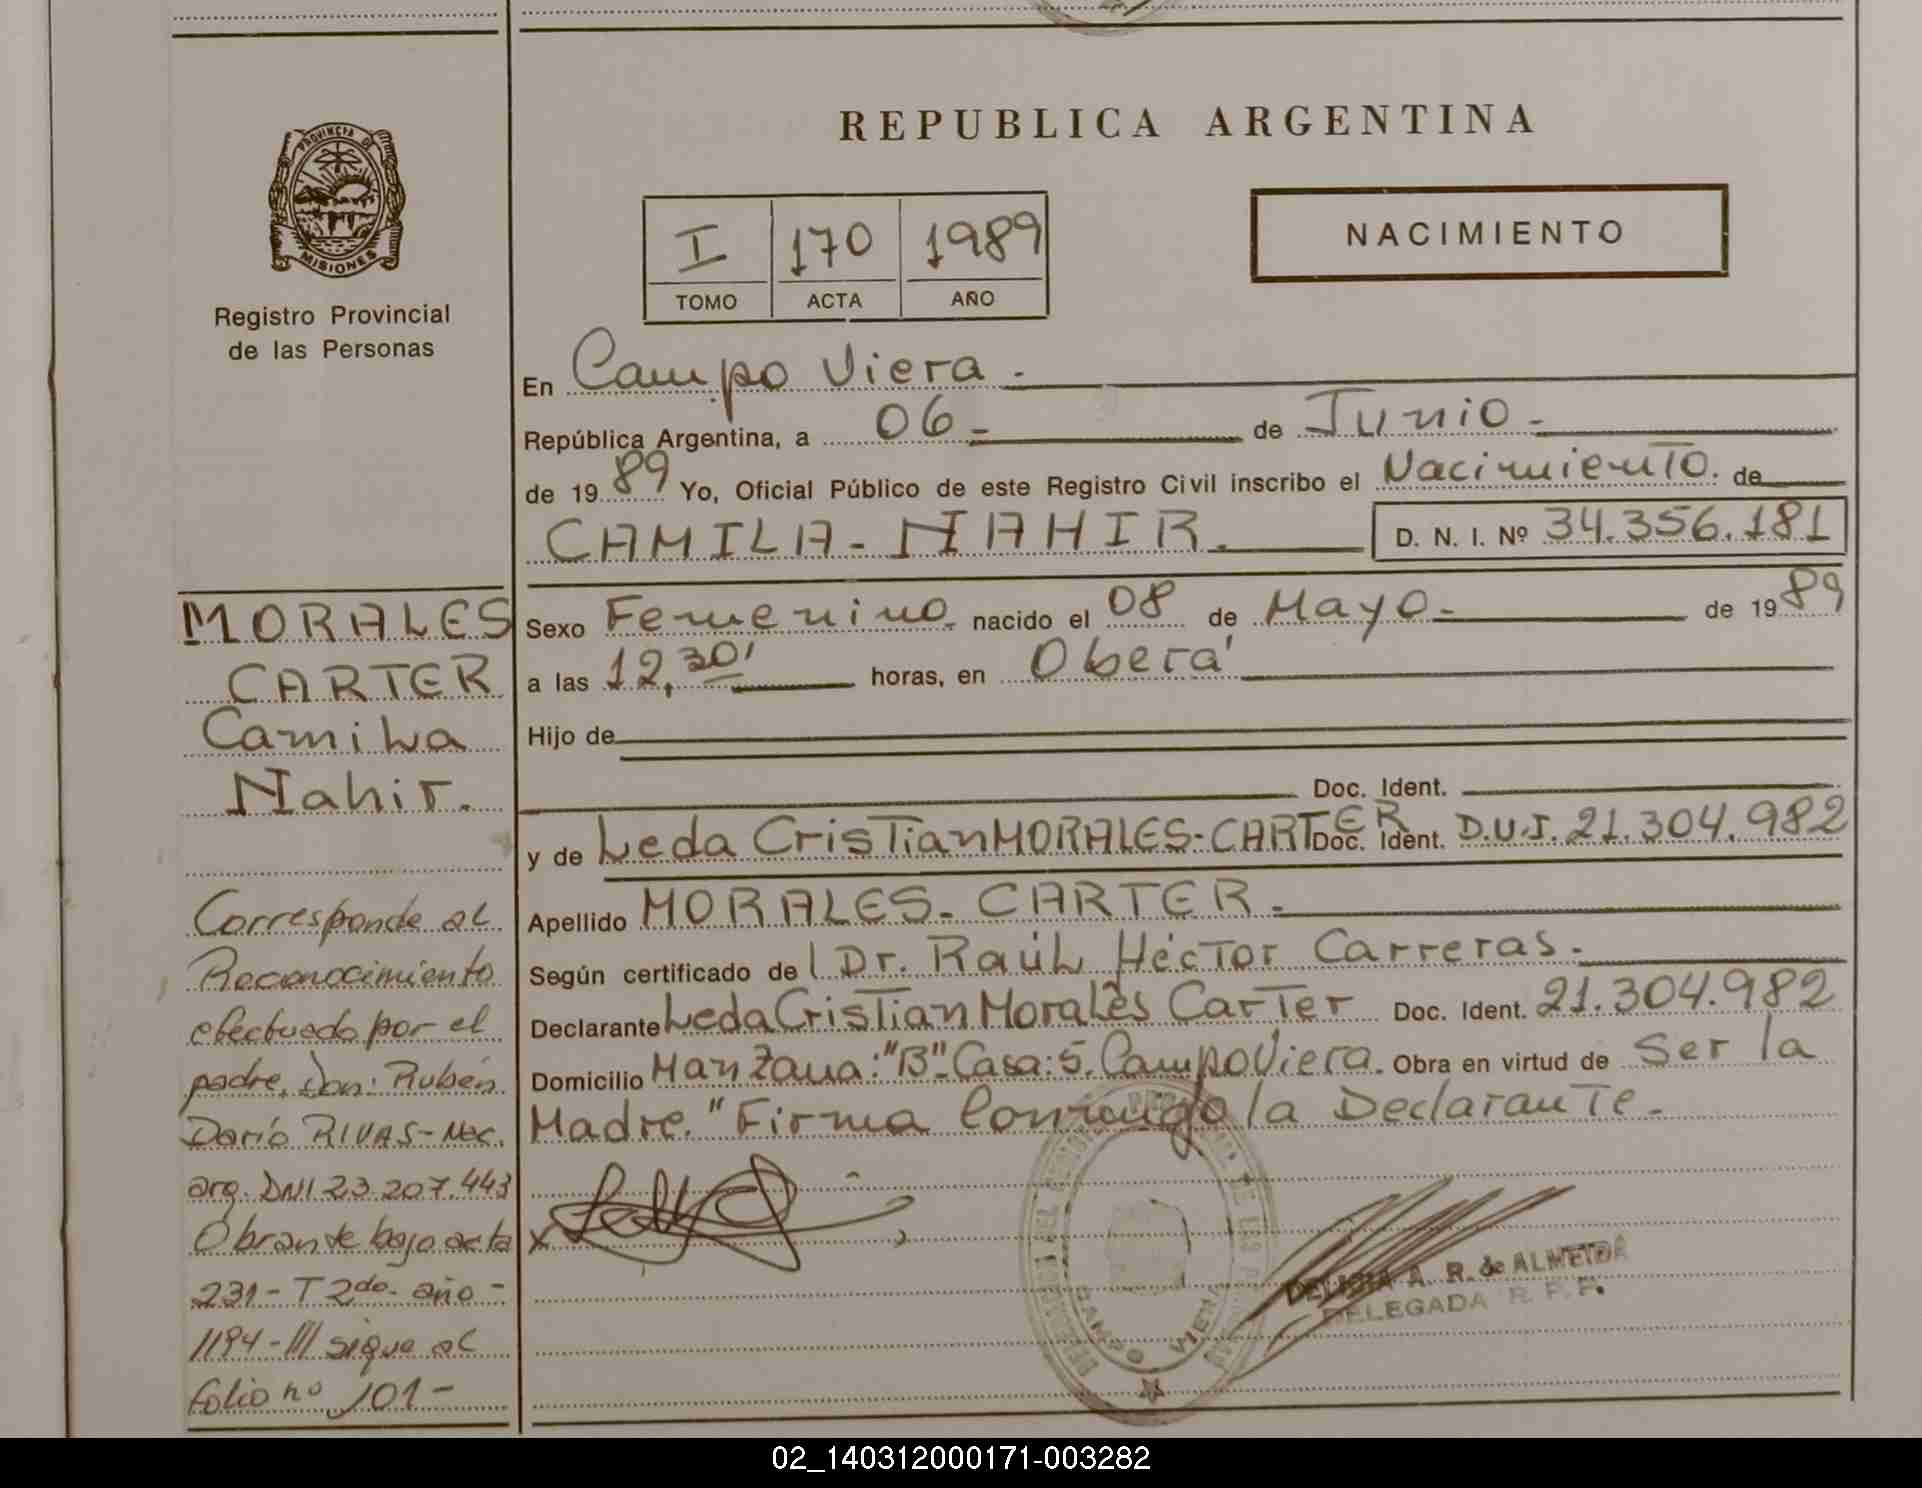 REPUBLICA ARGENTINA
PROVINCIA DE
MISIONES
Registro Provincial
de las Personas
I 170 1989
TOMO ACTA AÑO
NACIMIENTO
En Campo Viera.
República Argentina, a 06 de Junio
de 1989 Yo, Oficial Público de este Registro Civil inscribo el Nacimiento. de
CAMILA - NAHIR. D. N. I. Nº 34.356.181
Sexo Femenino. nacido el 08 de Mayo de 1989
a las 12,30' horas, en Oberá
Hijo de
Doc. Ident.
y de Leda Cristian MORALES-CARTER Doc. Ident. D.U.I. 21.304.982
Apellido MORALES-CARTER.
Según certificado del Dr. Raúl Héctor Carreras.
Declarante Leda Cristian Morales Carter Doc. Ident. 21.304.982
Domicilio Manzana: "B". Casa: 5. Campo Viera. Obra en virtud de Ser la
Madre." Firma Conmigo la Declarante.
MORALES
CARTER
Camila
Nahir.
Corresponde al
Reconocimiento
efectuado por el
padre, Don: Rubén
Darío RIVAS - Nac.
arg. DNI 23.207.443
Obrante bajo acta
231 - T 2do. año -
1194 - /// sigue al
folio nº 101 -
CAMPO VIERA
DELICIA A. R. de ALMEIDA
DELEGADA R. P. P.
02_140312000171-003282